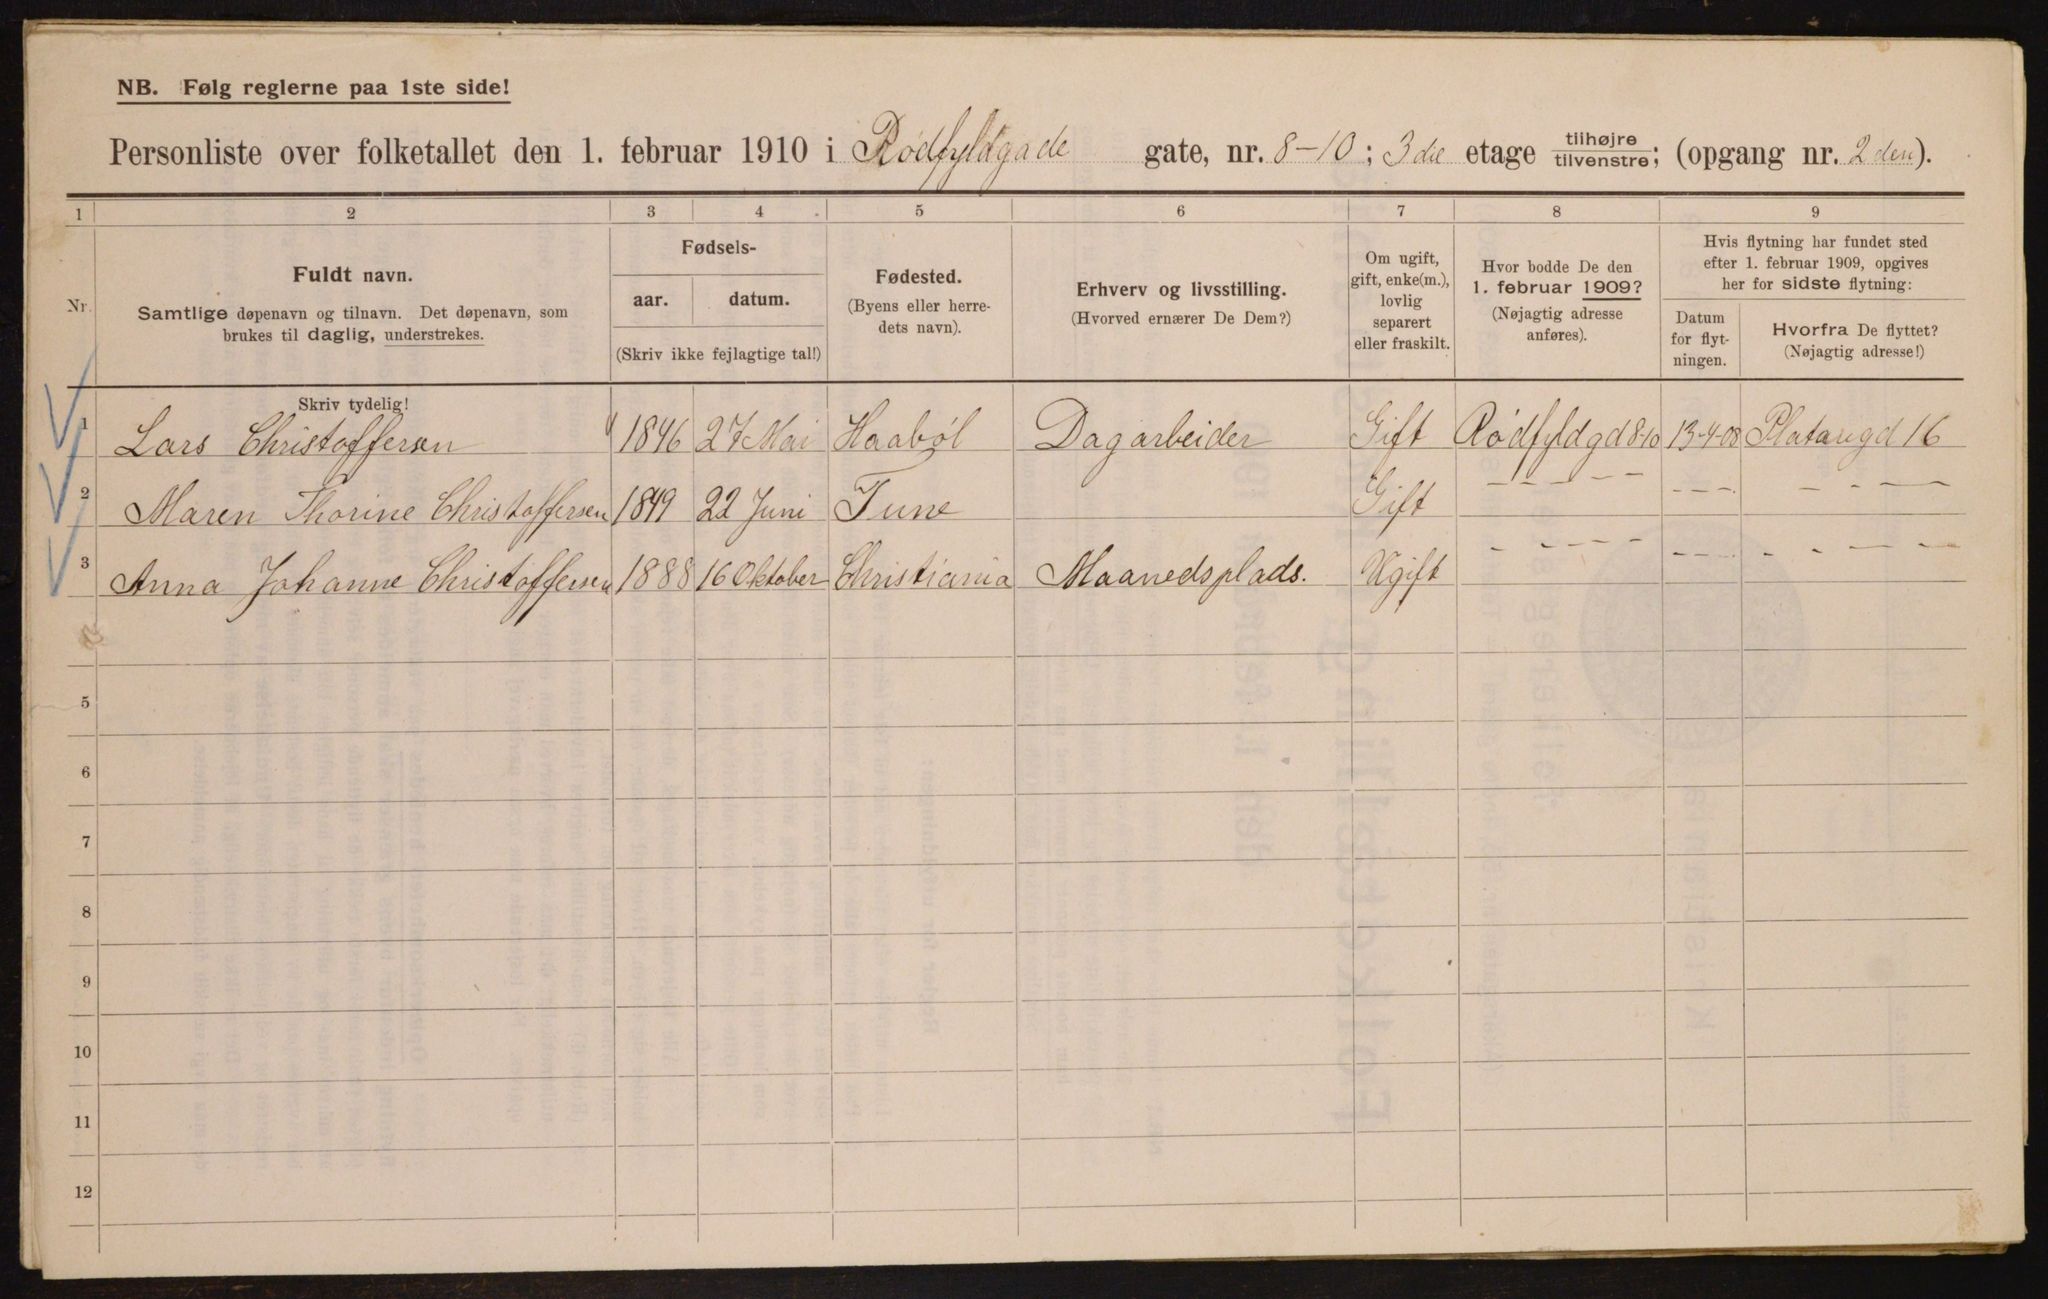 NB. Følg reglerne paa 1ste side!
Personliste over folketallet den 1. februar 1910 i Rødfyldgade gate, nr. 8-10; 3die etage tilhøjre tilvenstre; (opgang nr. 2den).
1 2 3 4 5 6 7 8 9
Nr.
Fuldt navn.
Samtlige døpenavn og tilnavn. Det døpenavn, som
brukes til daglig, understrekes.
Skriv tydelig!
Fødsels-
aar. datum.
(Skriv ikke fejlagtige tal!)
Fødested.
(Byens eller herre-
dets navn).
Erhverv og livsstilling.
(Hvorved ernærer De Dem?)
Om ugift,
gift, enke(m.),
lovlig
separert
eller fraskilt.
Hvor bodde De den
1. februar 1909?
(Nøjagtig adresse
anføres).
Hvis flytning har fundet sted
efter 1. februar 1909, opgives
her for sidste flytning:
Datum
for flyt-
ningen.
Hvorfra De flyttet?
(Nøjagtig adresse!)
1 Lars Christoffersen 1846 27 Mai Haabøl Dagarbeider Gift Rødfyldgd 8-10 13-4-08 Platougd 16
2 Maren Thorine Christoffersen 1849 22 Juni Tune Gift - - - - - - - - - - - -
3 Anna Johanne Christoffersen 1888 16 Oktober Christiania Maanedsplads. Ugift - - - - - - - - - - - - -
5
6
7
8
9
10
11
12